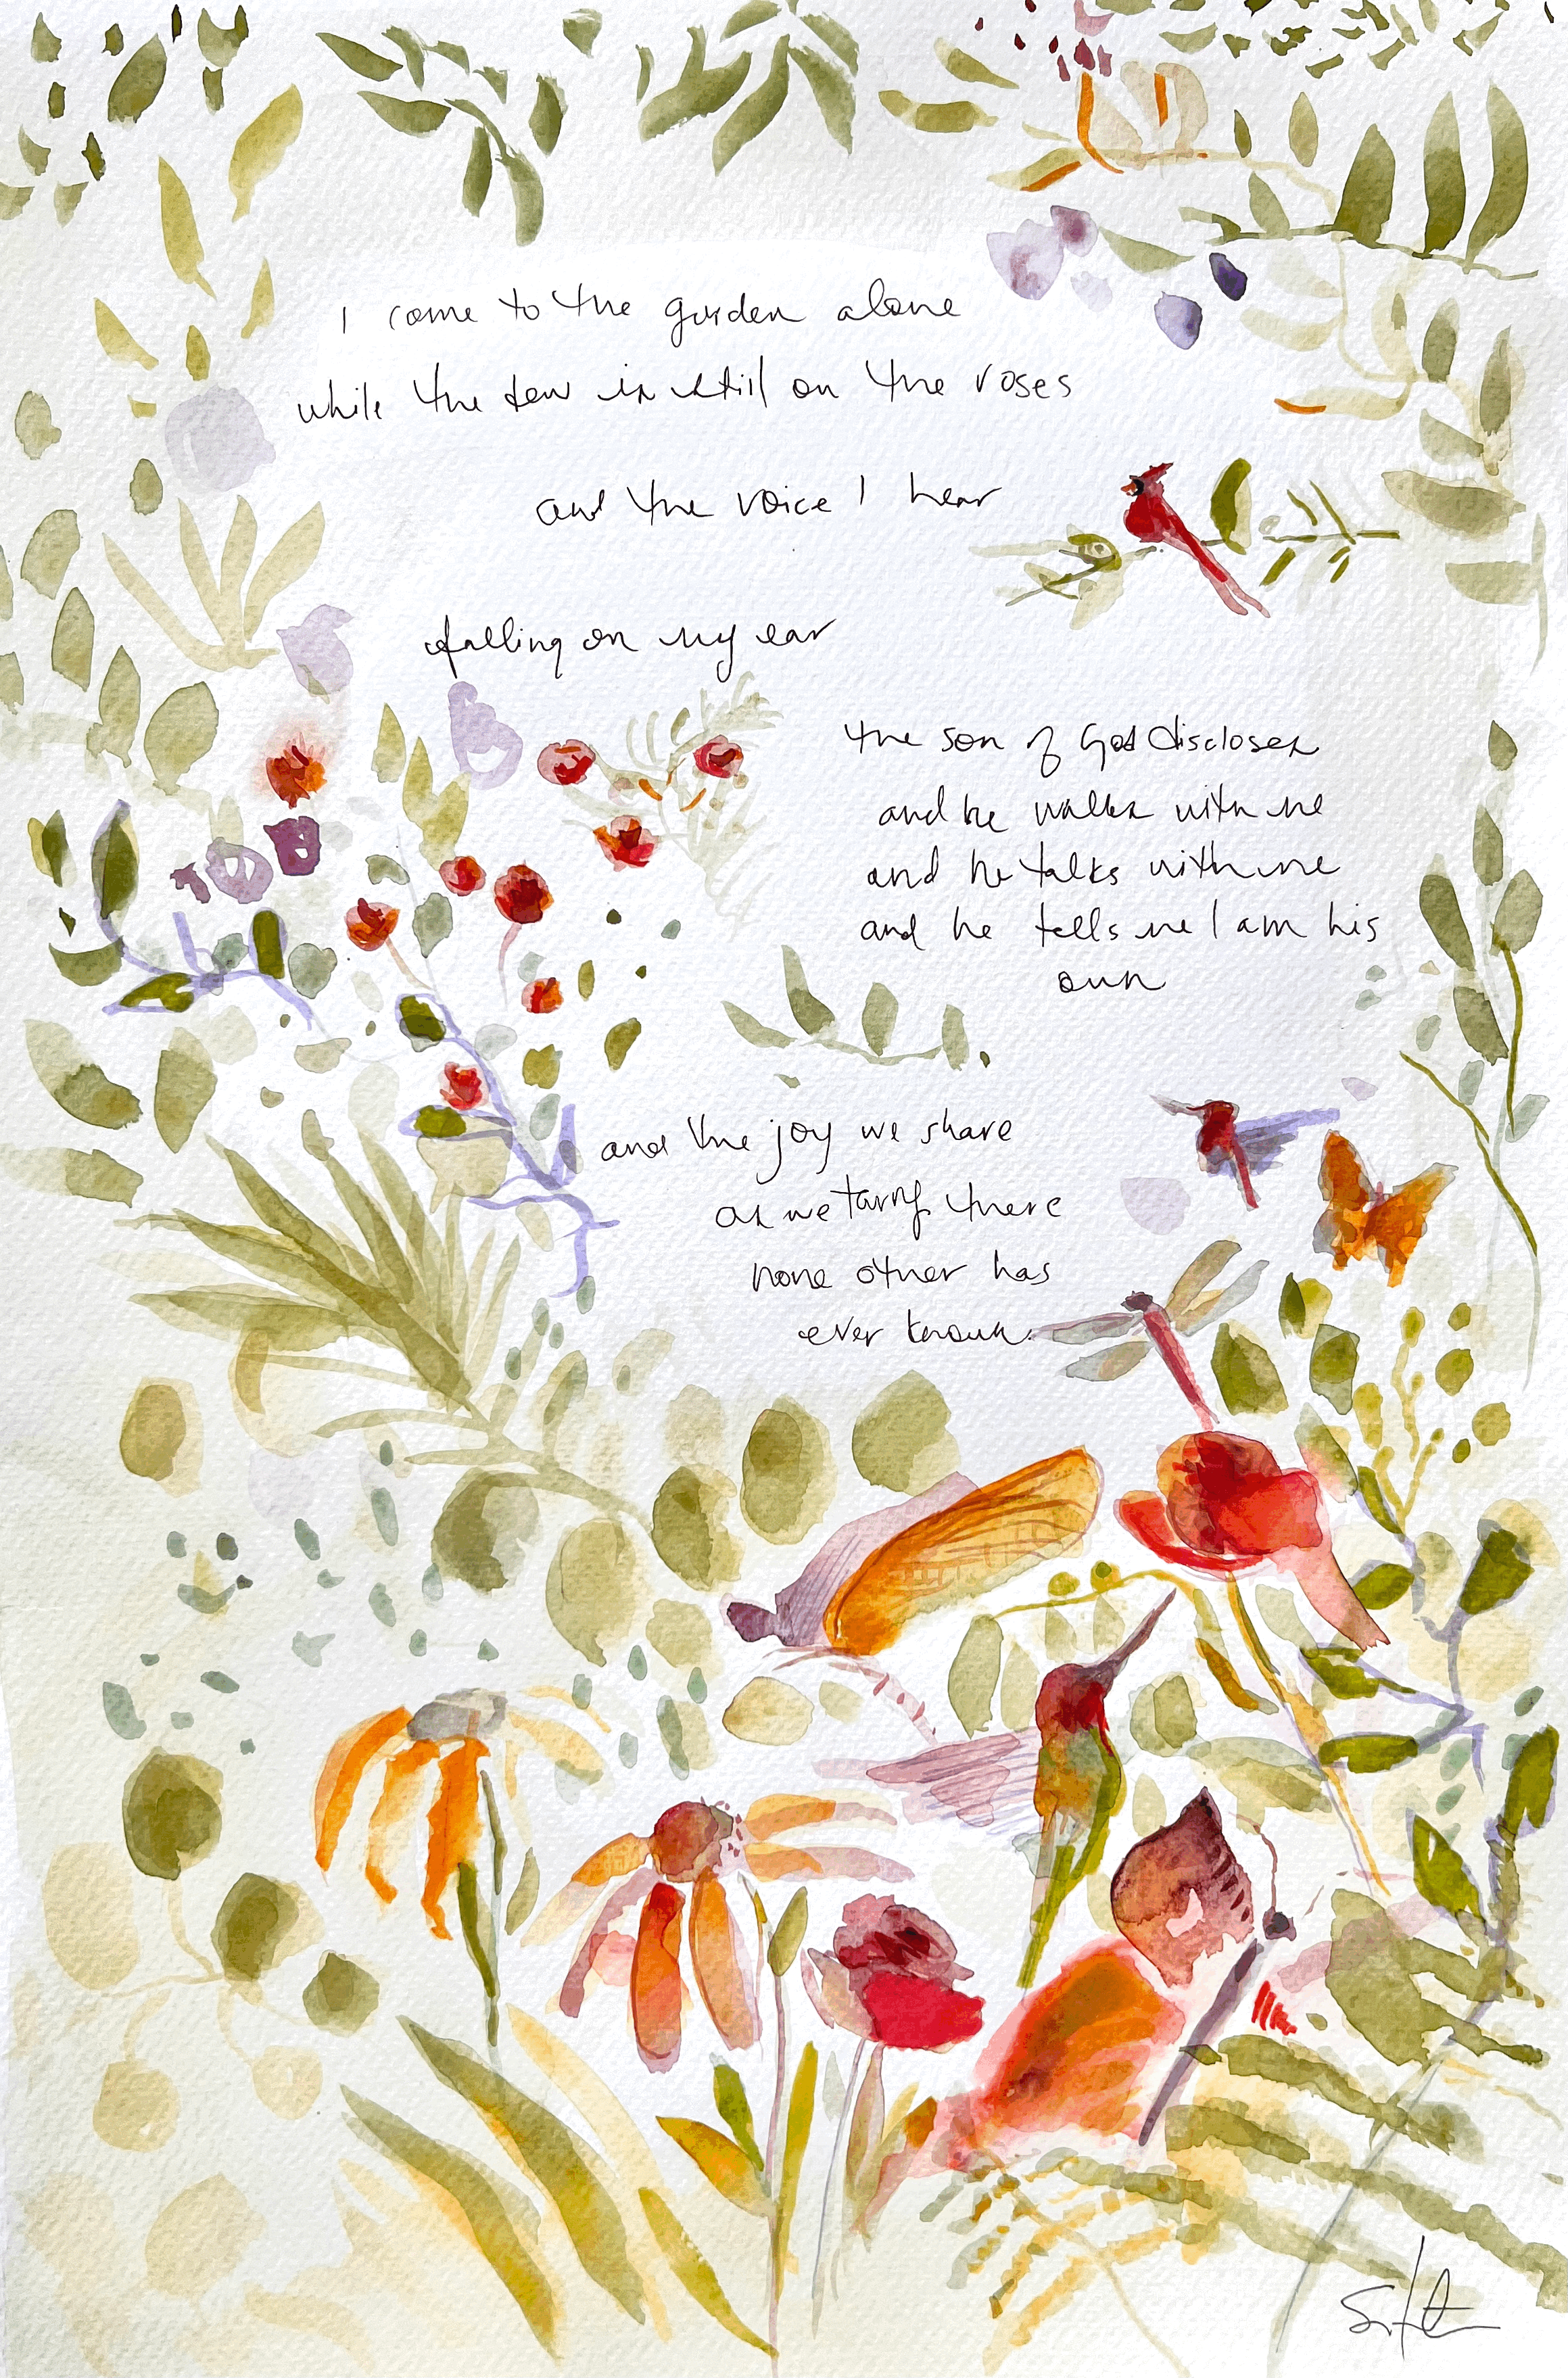 I come to the garden alone
while the dew is still on the roses
and the voice I hear
falling on my ear
the son of God discloses
and he walks with me
and he talks with me
and he tells me I am his
own
and the joy we share
as we tarry there
none other has
ever known.